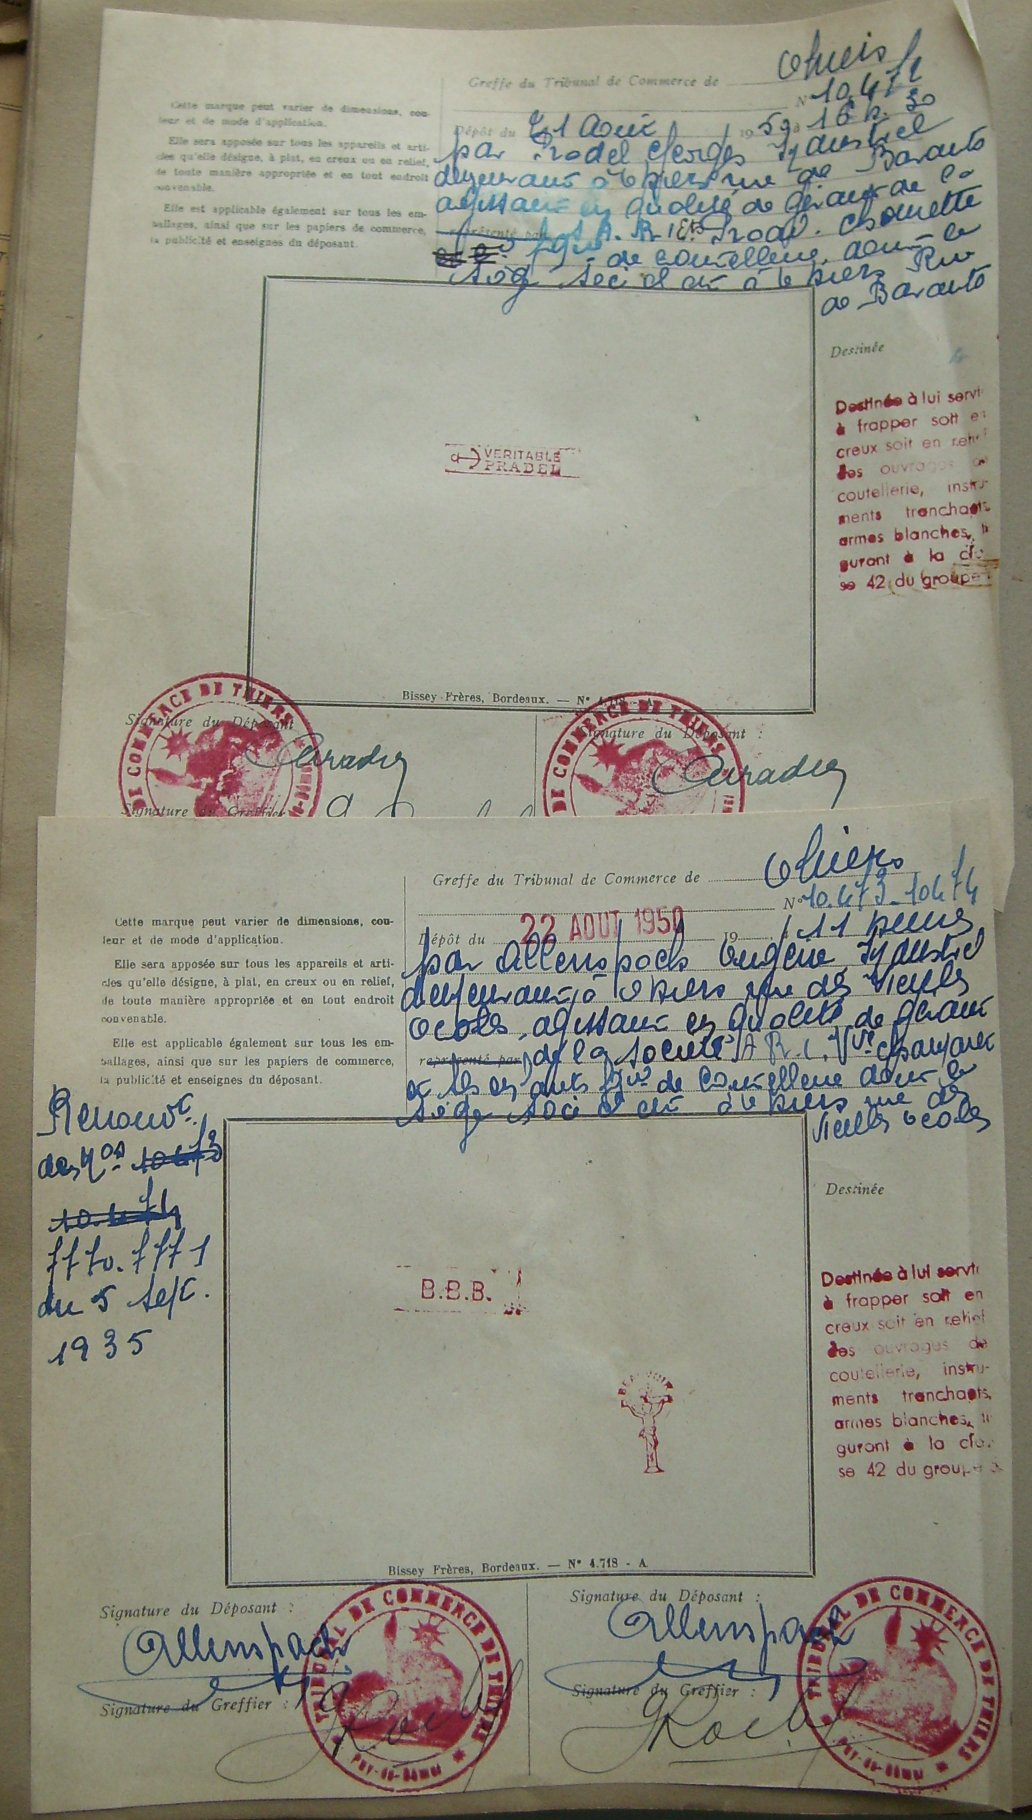 Greffe du Tribunal de Commerce de Thiers
N° 10.472
Cette marque peut varier de dimensions, cou-
leur et de mode d'application.
Elle sera apposée sur tous les appareils et arti-
cles qu'elle désigne, à plat, en creux ou en relief,
de toute manière appropriée et en tout endroit
convenable.
Elle est applicable également sur tous les em-
ballages, ainsi que sur les papiers de commerce,
la publicité et enseignes du déposant.
Dépôt du 21 Aout 1950 à 16 h. 30
par Pradel Georges Industriel
demeurant à Thiers rue de Barante
agissant en qualité de gérant de la
représenté par S. A. R. L. Ets Pradel Chomette
fque de coutellerie dont le
siège social est à Thiers Rue
de Barante
Destinée
Destinée à lui servi
à frapper soit en
creux soit en relief
des ouvrages de
coutellerie, instru-
ments tranchants,
armes blanches, fi
gurant à la clas
se 42 du groupe
VERITABLE
PRADEL
Bissey Frères, Bordeaux. — N° 4.718
Signature du Déposant
Signature du Déposant :
DE COMMERCE DE THIERS
DE COMMERCE DE THIERS
Signature du Greffier
Greffe du Tribunal de Commerce de Thiers
N° 10.473 - 10474
Cette marque peut varier de dimensions, cou-
leur et de mode d'application.
Elle sera apposée sur tous les appareils et arti-
cles qu'elle désigne, à plat, en creux ou en relief,
de toute manière appropriée et en tout endroit
convenable.
Elle est applicable également sur tous les em-
ballages, ainsi que sur les papiers de commerce,
la publicité et enseignes du déposant.
Dépôt du 22 AOUT 1950 19 à 11 heures
par Allenspach Eugène Industriel
demeurant à Thiers rue des Vieilles
Ecoles, agissant en qualité de gérant
représenté par de la Société A R. L. Vve
et ses enfants fque de coutellerie dont le
siège social est à Thiers rue des
Vieilles Ecoles
Renouvt
des Nos 10473
10.474
7770. 7771
du 5 sept.
1935
Destinée
Destinée à lui servi
à frapper soit en
creux soit en relief
des ouvrages de
coutellerie, instru-
ments tranchants,
armes blanches, fi
gurant à la clas
se 42 du groupe
B.B.B.
Bissey Frères, Bordeaux. — N° 4.718 - A
Signature du Déposant :
Signature du Déposant :
Allenspach
Allenspach
Signature du Greffier :
Signature du Greffier :
TRIBUNAL DE COMMERCE DE THIERS
PUY-DE-DÔME
TRIBUNAL DE COMMERCE DE THIERS
PUY-DE-DÔME